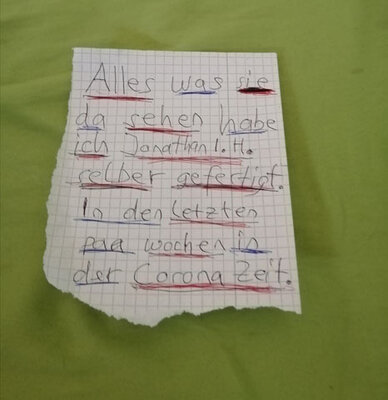 Alles was sie
da sehen habe
ich Jonathan I. H.
selber gefertigt.
In den letzten
paa wochen in
der Corona Zeit.